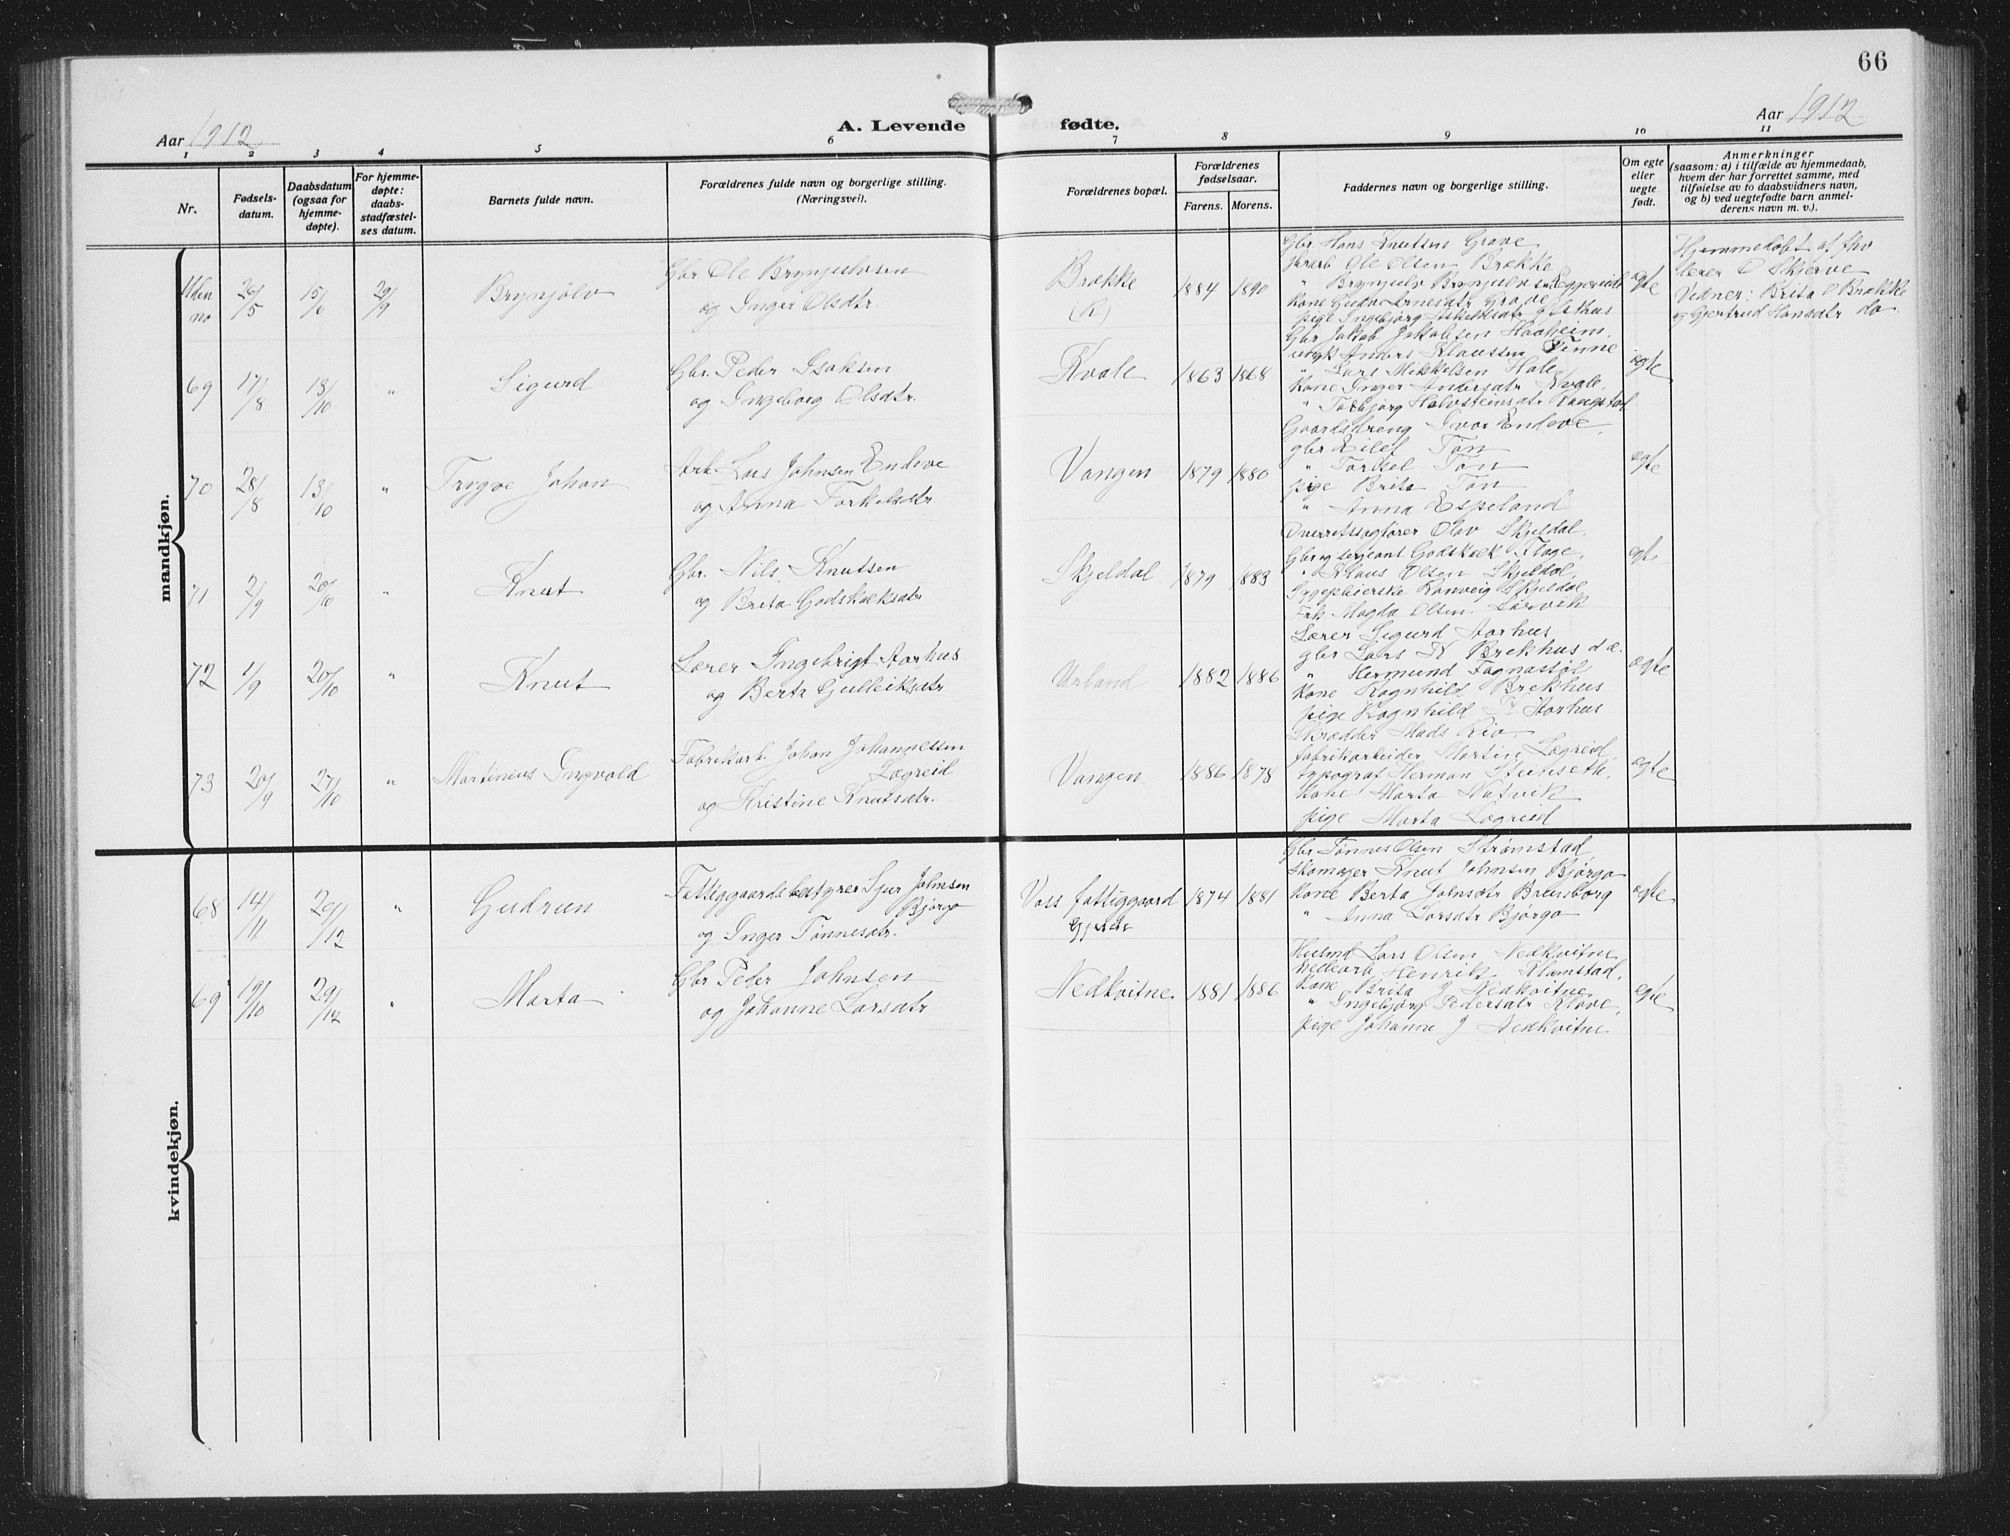 66
Aar 1912
A. Levende fødte.
Aar 1912
1 2 3 4 5 6 7 8 9 10 11
Nr.
Fødsels-
datum.
Daabsdatum
(ogsaa for
hjemme-
døpte).
For hjemme-
døpte:
daabs-
stadfæstel-
ses datum.
Barnets fulde navn.
Forældrenes fulde navn og borgerlige stilling.
(Næringsvei).
Forældrenes bopæl.
Forældrenes
fødselsaar.
Farens. Morens.
Faddernes navn og borgerlige stilling.
Om egte
eller
uegte
født.
Anmerkninger
(saasom: a) i tilfælde av hjemmedaab,
hvem der har forrettet samme, med
tilføielse av to daabsvidners navn,
og b) ved uegtefødte barn anmel-
derens navn m. v.).
mandkjøn.
Uden
no
26/5 15/6 29/9
Brynjølv
Gbr Ole Brynjulvsen
og Inger Olsdtr.
Brække
(R)
1884 1890
Gbr. Hans Knutsen Grove
Ole Olsen Brække
" Brynjulv Brynjulvsen
Kone Arnesdtr Grove
pige Ingebjørg
egte
Hjemmedøbt af
lærer O Skjerve
Vidner: Brita O Brække
og Gjertrud Hansdtr do.
69 17/8 13/10 "
Sigurd
Gbr. Peder Isaksen
og Ingeborg Olsdtr.
Kvale
1863 1868
Gbr Jakob Jakobsen Haaheim
Anders Klaussen Finne
" Lars Mikkelsen Hole
Kone Inger Andersdtr Kvale,
" Torbjørg Holvsteinsdtr Rongstad
egte
70 28/8 13/10 "
Trygve Johan
Arb. Lars Johnsen Endeve
og Anna Torkelsdtr
Vangen
1879 1880
Gaardsdreng Ivar Endeve,
gbr Eilef Tøn
" Torkel Tøn
pige Brita Tøn
" Anna Espeland
egte
71 2/9 20/10 "
Knut
Gbr. Nils Knutsen
og Brita Godskalksdtr
Skjeldal
1879 1883
Overretssagfører Olav Skjeldal,
Gbr og sergeant Godskalk Flage,
" Klaus Olsen Skjeldal,
Sygepleierske Ranveig Skjeldal
Frk. Magda Olsen. Larvik
egte
72 1/9 20/10 "
Knut
Lærer Ingebrigt Aarhus
og Berta Gulleiksdtr
Urland
1882 1886
Lærer Sigurd Aarhus
gbr Lars N Brekhus d.æ.
" Hermund Fagnastøl
Kone Ragnhild Brekhus
pige Ragnhild Aarhus
egte
73 20/9 27/10 "
Martinius Ingvald
Fabrikarb. Johan Johannessen
Lægreid
og Kristine Knutsdtr.
Vangen
1886 1878
Skrædder Mads Rio.
fabrikarbeider Martin Lægreid,
typograf Herman Steinseth,
Kone Marta Natvik
pige Marta Lægreid
egte
kvindekjøn.
68 14/11 26/12 "
Gudrun
Fattiggaardsbestyrer Sjur Johnsen
Bjørgo
og Inger Tønnesdtr.
Voss fattiggaard
Gjerde
1874 1881
Gbr Tønnes Olsen Strømstad
Skomager Knut Johnsen Bjørgo
Kone Berta Johnsdtr Brunborg
" Anna Larsdtr Bjørgo
egte
69 19/10 29/12 "
Marta
Gbr Peder Johnsen
og Johanne Larsdtr
Nedkvitne.
1881 1886
Husmd Lars Olsen Nedkvitne
Henrik Flamstad,
Kone Brita J Nedkvitne
" Ingebjørg Pedersdtr Kløve,
pige Johanne J Nedkvitne
egte